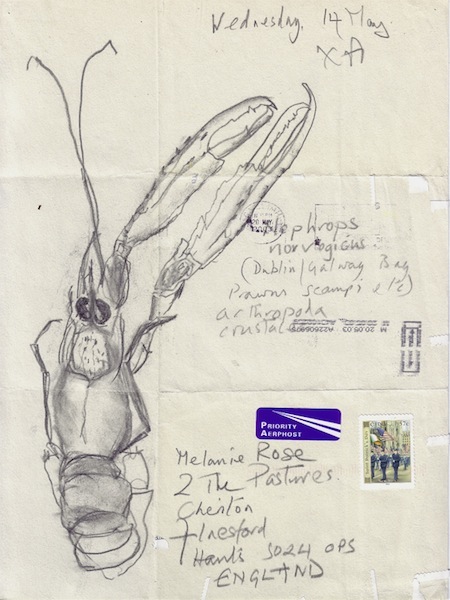 Wednesday. 14 May.
XA
Nephrops
norvegicus.
(Dublin/Galway Bay
Prawns scampi etc)
arthropoda
M 20.05.03 A2260699
PRIORITY
AERPHOST
Melanie Rose
2 The Pastures.
Cheriton
Alresford
Hants SO24 0PS
ENGLAND